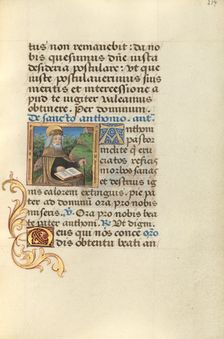 219
tus non remanebit: da no
bis quesumus dñe iusta
desideria postulare: Ut que
iuste postulauerimus suis
meritis et intercessione a
pud te iugiter valeamus
obtinere. Per dominum.
De sancto anthonio. ant.
Anthoni
pastor
inclite q̄ cru
ciatos reficis
morbos sanas
et destruis ig
nis calorem extinguis. pie pa
ter ad dominū ora pro nobis
miseris. V. Ora pro nobis bea
te pater anthoni. R. Ut digni.
Deus qui nos conce oro
dis obtentu beati an